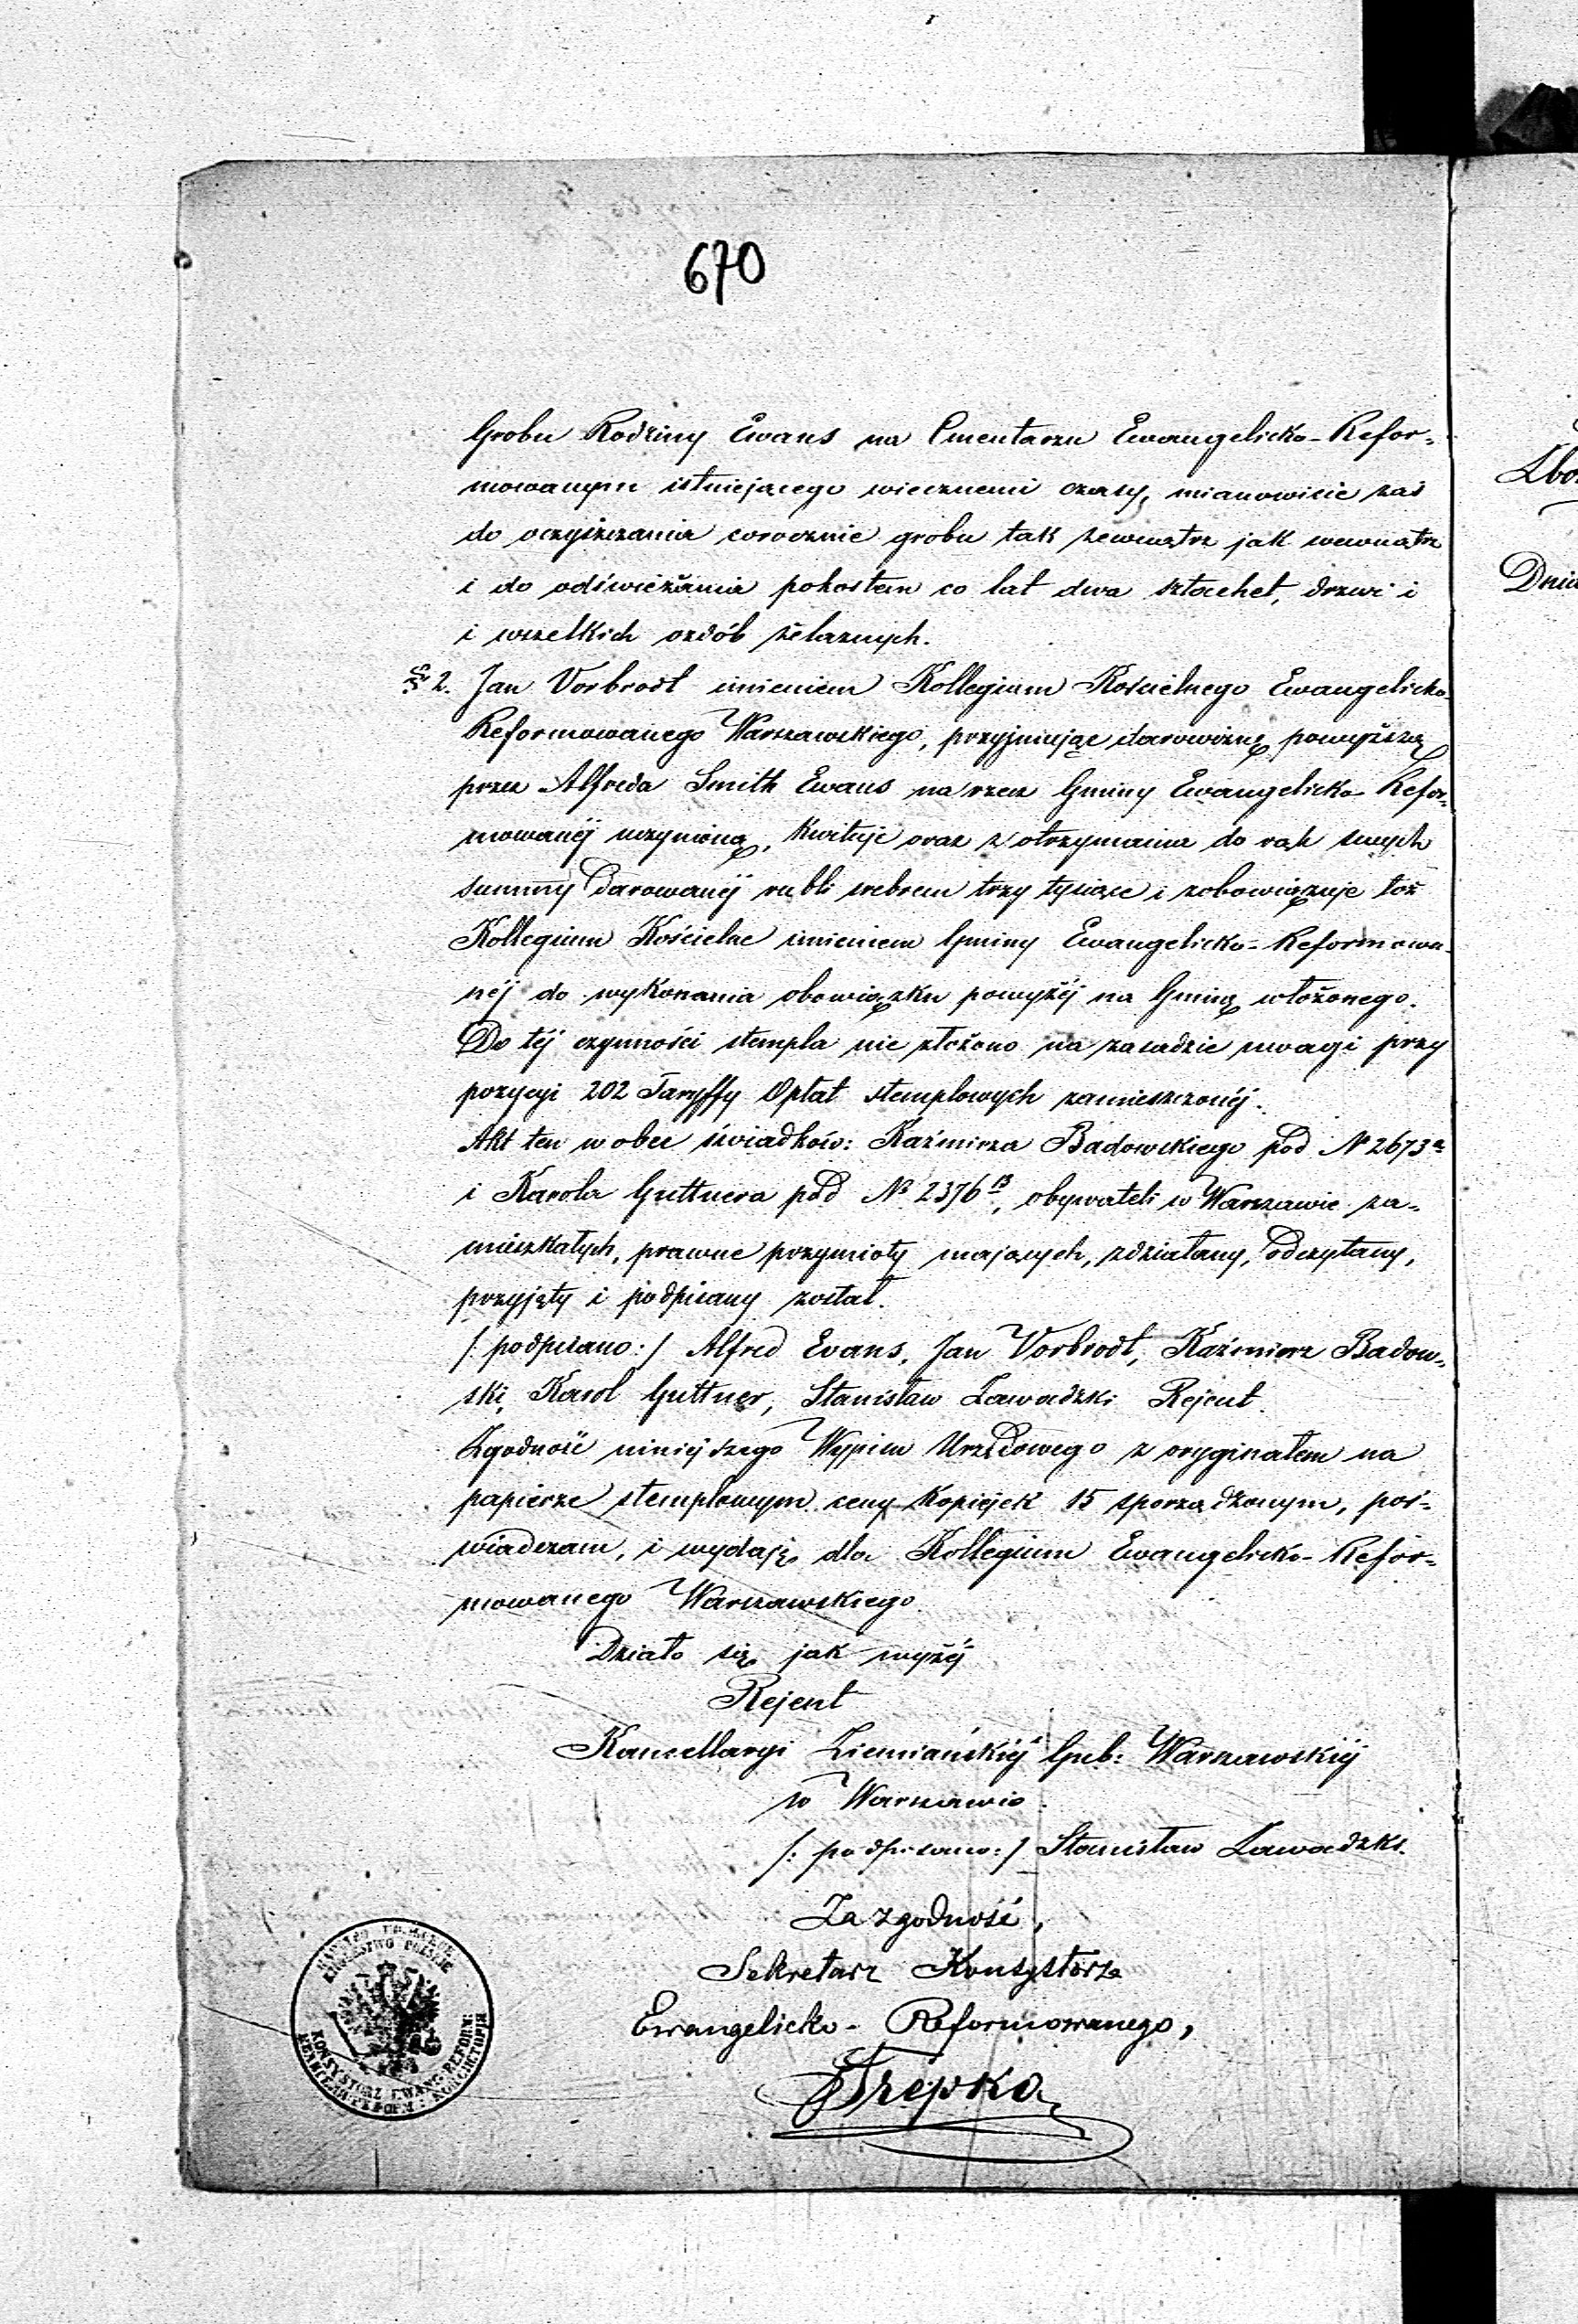 670
Grobu Rodziny Ewans na Cmentarzu Ewangelicko-Refor-
mowanym istniejącego wiecznemi czasy, mianowicie zaś
do oczyszczania corocznie grobu tak zewnątrz jak wewnątrz
i do odświeżania pokostem co lat dwa sztachet, drzwi i
i wszelkich ozdób żelaznych.
§ 2. Jan Vorbrodt imieniem Kollegium Kościelnego Ewangelicko-
Reformowanego Warszawskiego, przyjmując darowiznę powyższą
przez Alfreda Smith Ewans na rzecz Gminy Ewangelicko Refor-
mowanéj uczynioną, kwituje oraz z otrzymania do rąk swych
summy darowanéj rubli srebrem trzy tysiące i zobowiązuje toż
Kollegium Kościelne imieniem Gminy Ewangelicko-Reformowa-
néj do wykonania obowiązku powyżéj na Gminę włożonego.
Do téj czynności stempla nie złożono na zasadzie uwagi przy
pozycyi 202 Taryffy Opłat stemplowych zamieszczonéj.
Akt ten w obec świadków: Kaźmirza Badowskiego pod № 2673a
i Karola Guttnera pod № 2376B, obywateli w Warszawie za-
mieszkałych, prawne przymioty mających, zdziałany, odczytany,
przyjęty i podpisany został.
/: podpisano:/ Alfred Evans, Jan Vorbrodt, Kaźmierz Badow-
ski, Karol Guttner, Stanisław Zawadzki Rejent.
Zgodność niniejszego Wypisu Urzędowego z oryginałem na
papierze stemplowym ceny kopiejek 15 sporządzonym, poś-
wiadczam, i wydaję dla Kollegium Ewangelicko-Refor-
mowanego Warszawskiego.
Działo się jak wyżéj
Rejent
Kancellaryi Ziemiańskiéj Gub: Warszawskiéj
w Warszawie.
/: podpisano:/ Stanisław Zawadzki.
Za zgodność,
Sekretarz Konsystorza
Ewangelicko-Reformowanego,
Trepka
KRÓLESTWO POLSKIE
KONSYSTORZ EWANG: REFORM:
Zbo
Dnia